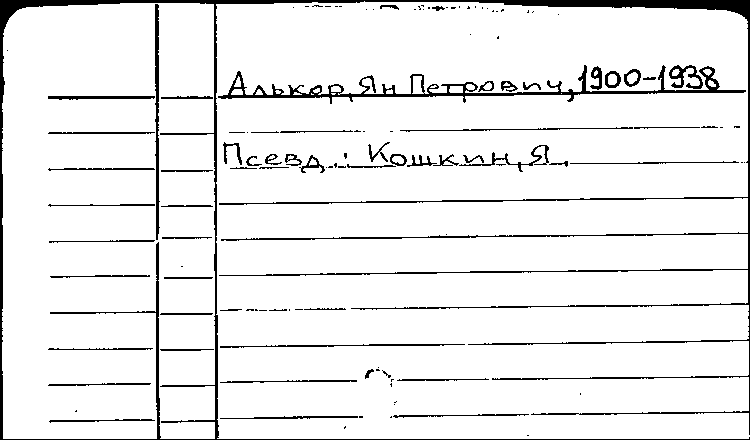 Алькор, Ян Петрович, 1900-1938
Псевд.: Кошкин, Я.